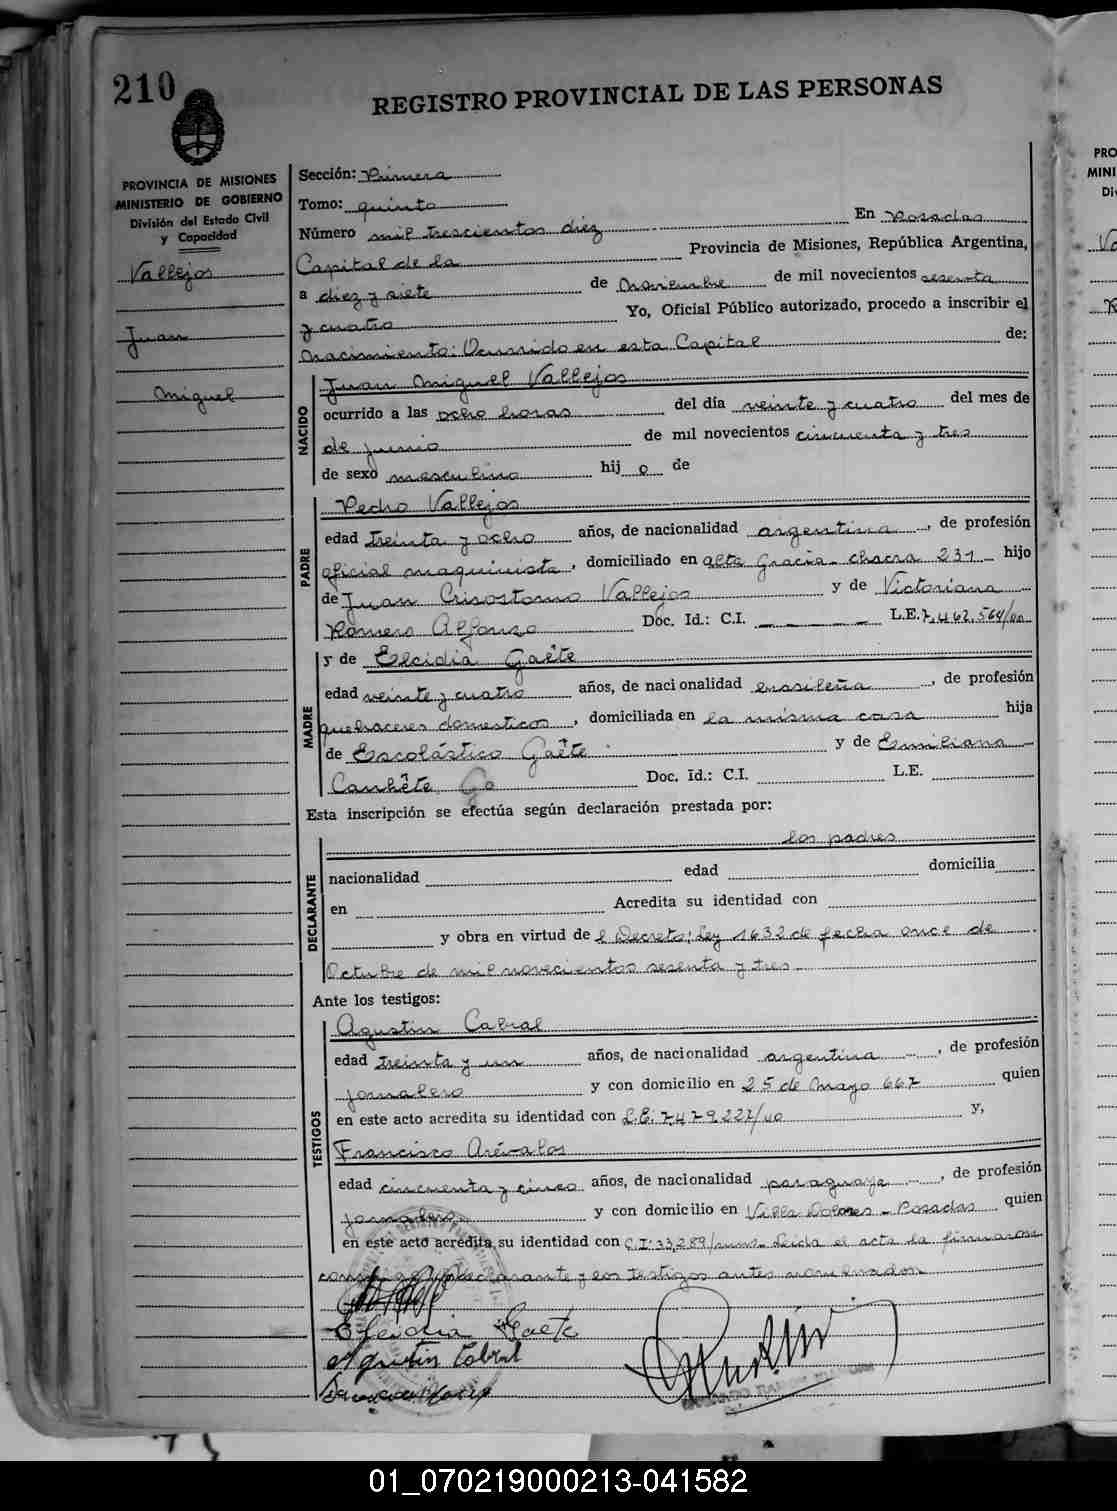 210
REGISTRO PROVINCIAL DE LAS PERSONAS
PROVINCIA DE MISIONES
MINISTERIO DE GOBIERNO
División del Estado Civil
y Capacidad
Vallejos
Juan
Miguel
Sección: Primera
Tomo: quinto
Número mil trescientos diez En Posadas
Capital de la Provincia de Misiones, República Argentina,
a diez y siete de Noviembre de mil novecientos sesenta
y cuatro Yo, Oficial Público autorizado, procedo a inscribir el
nacimiento: Ocurrido en esta Capital de:
NACIDO
Juan Miguel Vallejos
ocurrido a las ocho horas del día veinte y cuatro del mes de
de junio de mil novecientos cincuenta y tres
de sexo masculino hij o de
PADRE
Pedro Vallejos
edad treinta y ocho años, de nacionalidad argentina, de profesión
oficial maquinista, domiciliado en alta Gracia - chacra 231 hijo
de Juan Crisostomo Vallejos y de Victoriana
Romero Alfonzo Doc. Id.: C.I. L.E. 7.462.564/
MADRE
y de Elcidia Gaête
edad veinte y cuatro años, de nacionalidad brasileña, de profesión
quehaceres domesticos, domiciliada en la misma casa hija
de Escolástico Gaête y de Emiliana
Canhête Doc. Id.: C.I. L.E.
Esta inscripción se efectúa según declaración prestada por:
DECLARANTE
los padres
nacionalidad edad domicilia
en Acredita su identidad con
y obra en virtud de l Decreto: Ley 1632 de fecha once de
Octubre de mil novecientos sesenta y tres
Ante los testigos:
TESTIGOS
Agustin Cabral
edad treinta y un años, de nacionalidad argentina, de profesión
jornalero y con domicilio en 25 de Mayo 667 quien
en este acto acredita su identidad con L.E. 7.479.227/ y,
Francisco Arévalos
edad cincuenta y cinco años, de nacionalidad paraguaya, de profesión
jornalero y con domicilio en Villa Dolores - Posadas quien
en este acto acredita su identidad con C.I. 33.289/ Leida el acta la firmaron
conmigo declarante y los testigos antes nombrados
Elcidia Gaete
Agustin Cabral
01_070219000213-041582